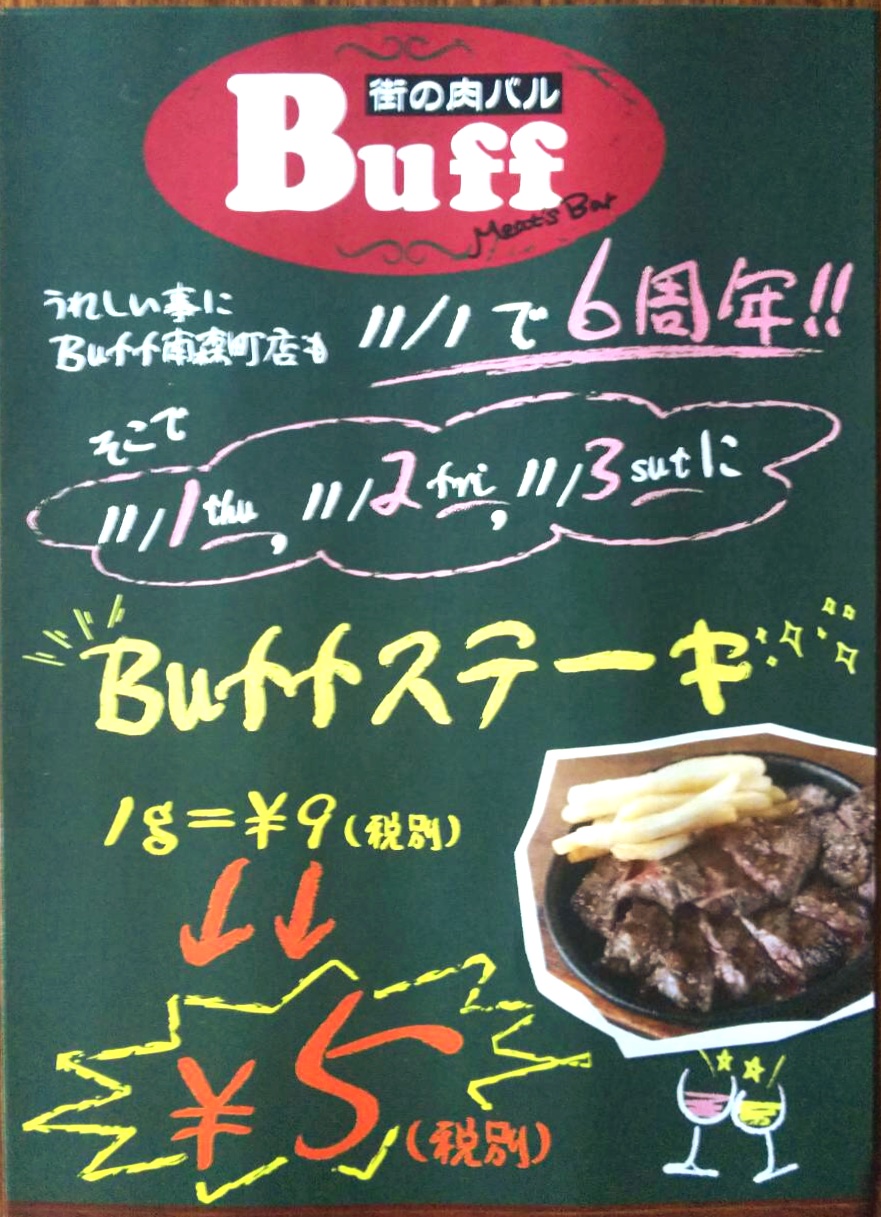 街の肉バル
Buff
Meat's Bar
うれしい事に
Buff南森町店も
11/1で6周年!!
そこで
11/1thu, 11/2fri, 11/3sutに
Buffステーキ
1g=¥9(税別)
¥5(税別)